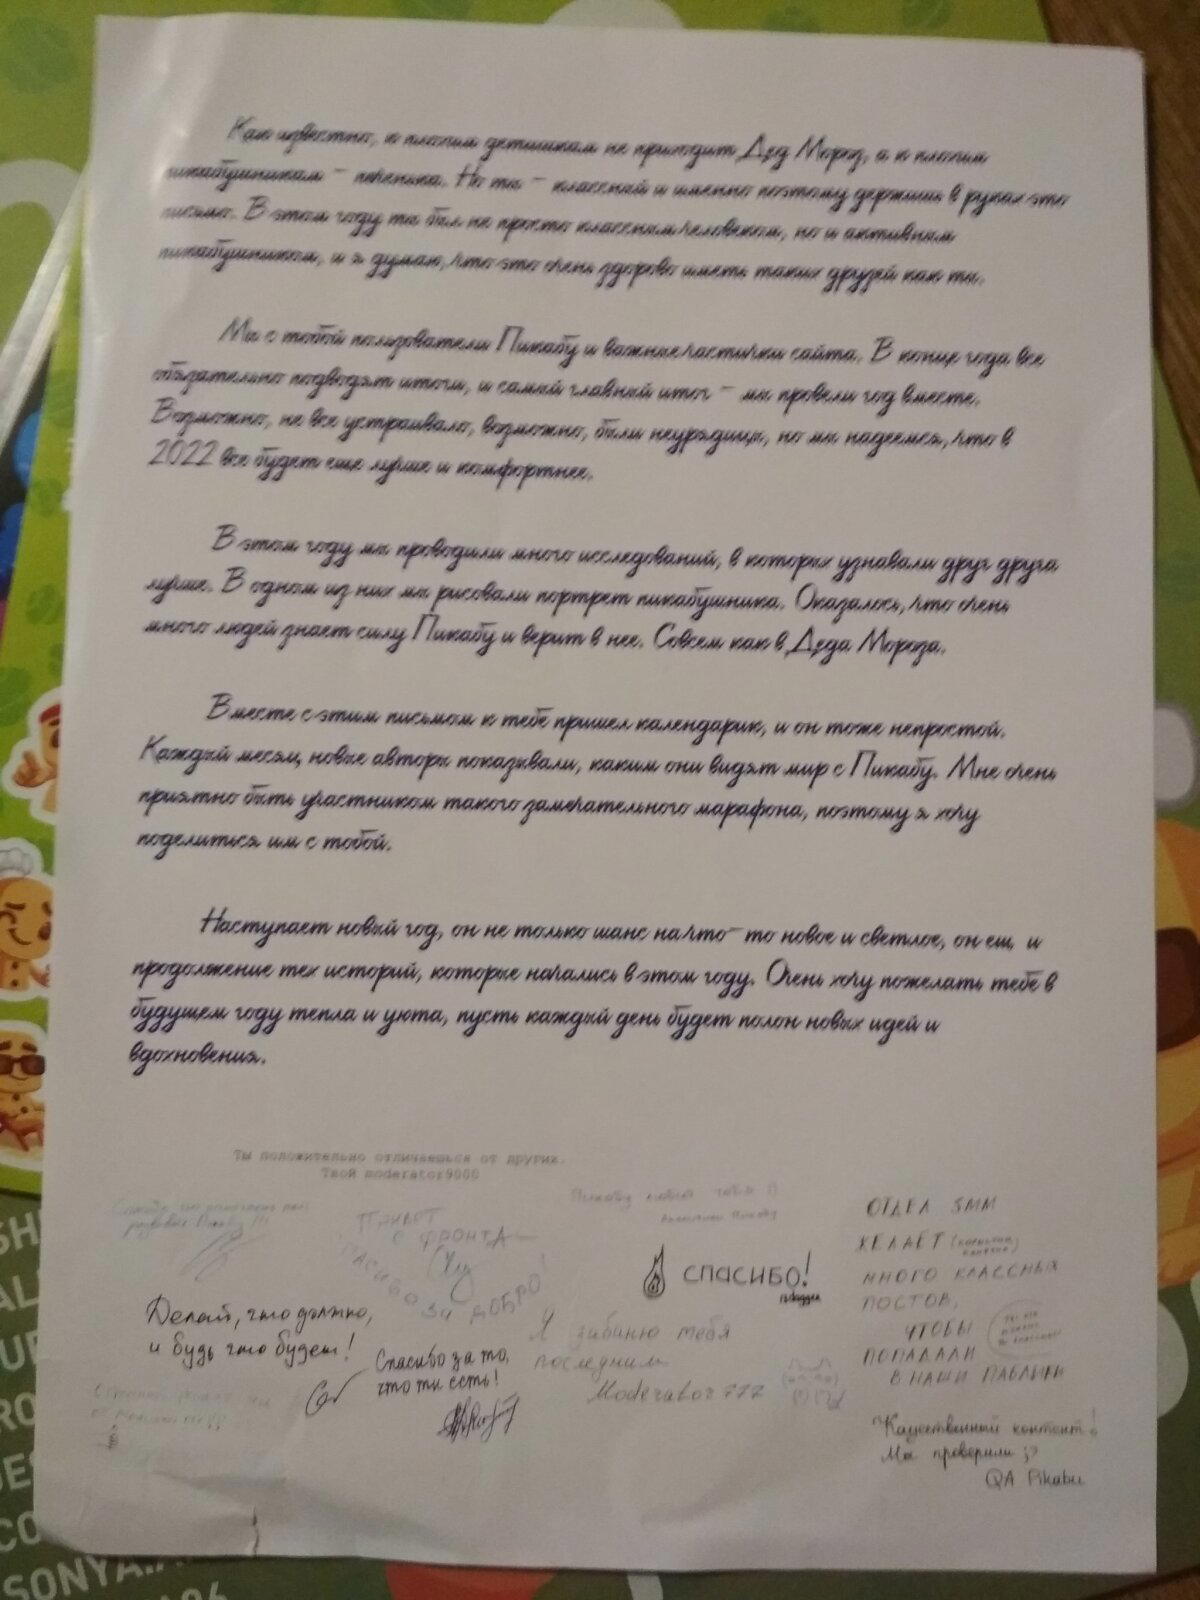 Как известно, к плохим детишкам не приходит Дед Мороз, а к плохим
пикабушникам – печенька. Но ты – классный и именно поэтому держишь в руках это
письмо. В этом году ты был не просто классным человеком, но и активным
пикабушником, и я думаю, что это очень здорово иметь таких друзей как ты.
Мы с тобой пользователи Пикабу и важные частички сайта. В конце года все
обязательно подводят итоги, и самый главный итог – мы провели год вместе.
Возможно, не все устраивало, возможно, были неурядицы, но мы надеемся, что в
2022 все будет еще лучше и комфортнее.
В этом году мы проводили много исследований, в которых узнавали друг друга
лучше. В одном из них мы рисовали портрет пикабушника. Оказалось, что очень
много людей знает силу Пикабу и верит в нее. Совсем как в Деда Мороза.
Вместе с этим письмом к тебе пришел календарик, и он тоже непростой.
Каждый месяц новые авторы показывали, каким они видят мир с Пикабу. Мне очень
приятно быть участником такого замечательного марафона, поэтому я хочу
поделиться им с тобой.
Наступает новый год, он не только шанс на что-то новое и светлое, он ещ и
продолжение тех историй, которые начались в этом году. Очень хочу пожелать тебе в
будущем году тепла и уюта, пусть каждый день будет полон новых идей и
вдохновения.
Ты положительно отличаешься от других.
Твой moderator9000
развивать Пикабу!!!
Привет
с фронта
Спасибо за добро!
Пикабу любит тебя
Пикабу
спасибо!
Делай, что должно,
и будь что будет!
Спасибо за то,
что ты есть!
Я забаню тебя
последним
Moderator777
ОТДЕЛ SMM
ЖЕЛАЕТ
МНОГО КЛАССНЫХ
ПОСТОВ,
ЧТОБЫ
ПОПАДАЛИ
В НАШИ ПАБЛИКИ
"Качественный контент!
Мы проверили ;)
QA Pikabu
SONYA.A